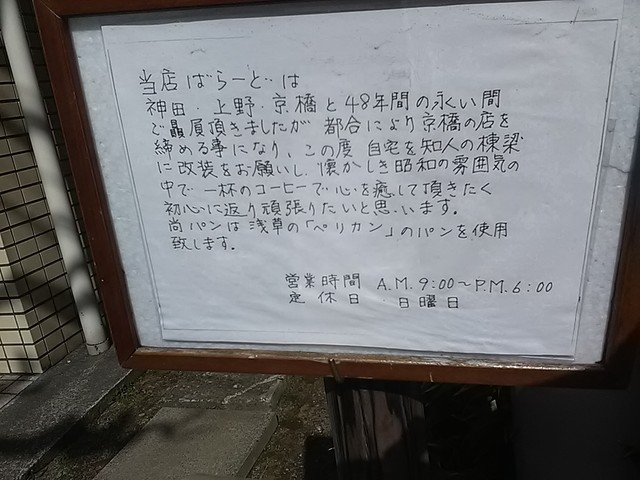 当店ばらーどは
神田・上野・京橋と48年間の永い間
で贔屓頂きましたが 都合により京橋の店を
締める事になり、この度 自宅を知人の棟梁
に改装をお願いし、懐かしき昭和の雰囲気の
中で 一杯のコーヒーで心を癒して頂きたく
初心に返り頑張りたいと思います。
尚パンは浅草の「ペリカン」のパンを使用
致します。
営業時間 A.M.9:00～P.M.6:00
定休日 日曜日